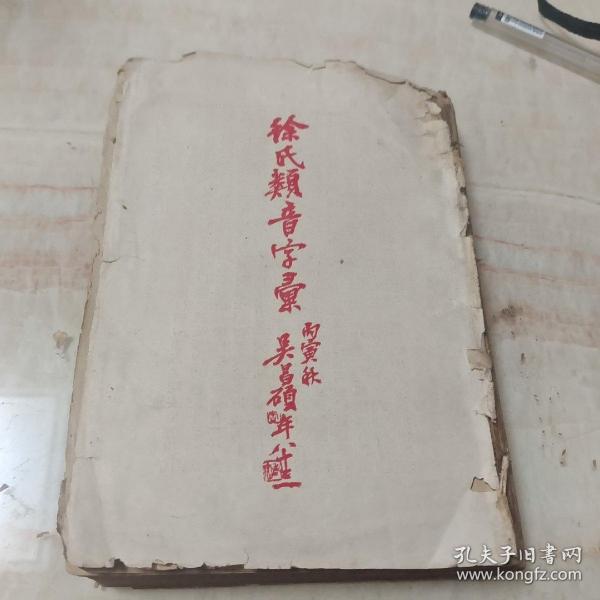 徐氏類音字彙
丙寅秋
吳昌碩年八十三
孔夫子旧书网
www.kongfz.com